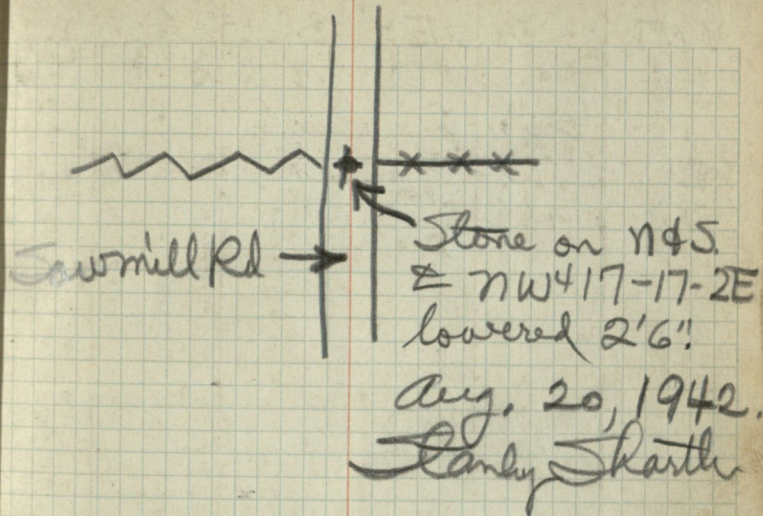 Sawmill Rd
Stone on N & S.
NW 4 17-17-2E
lowered 2'6".
Aug. 20, 1942.
Stanley